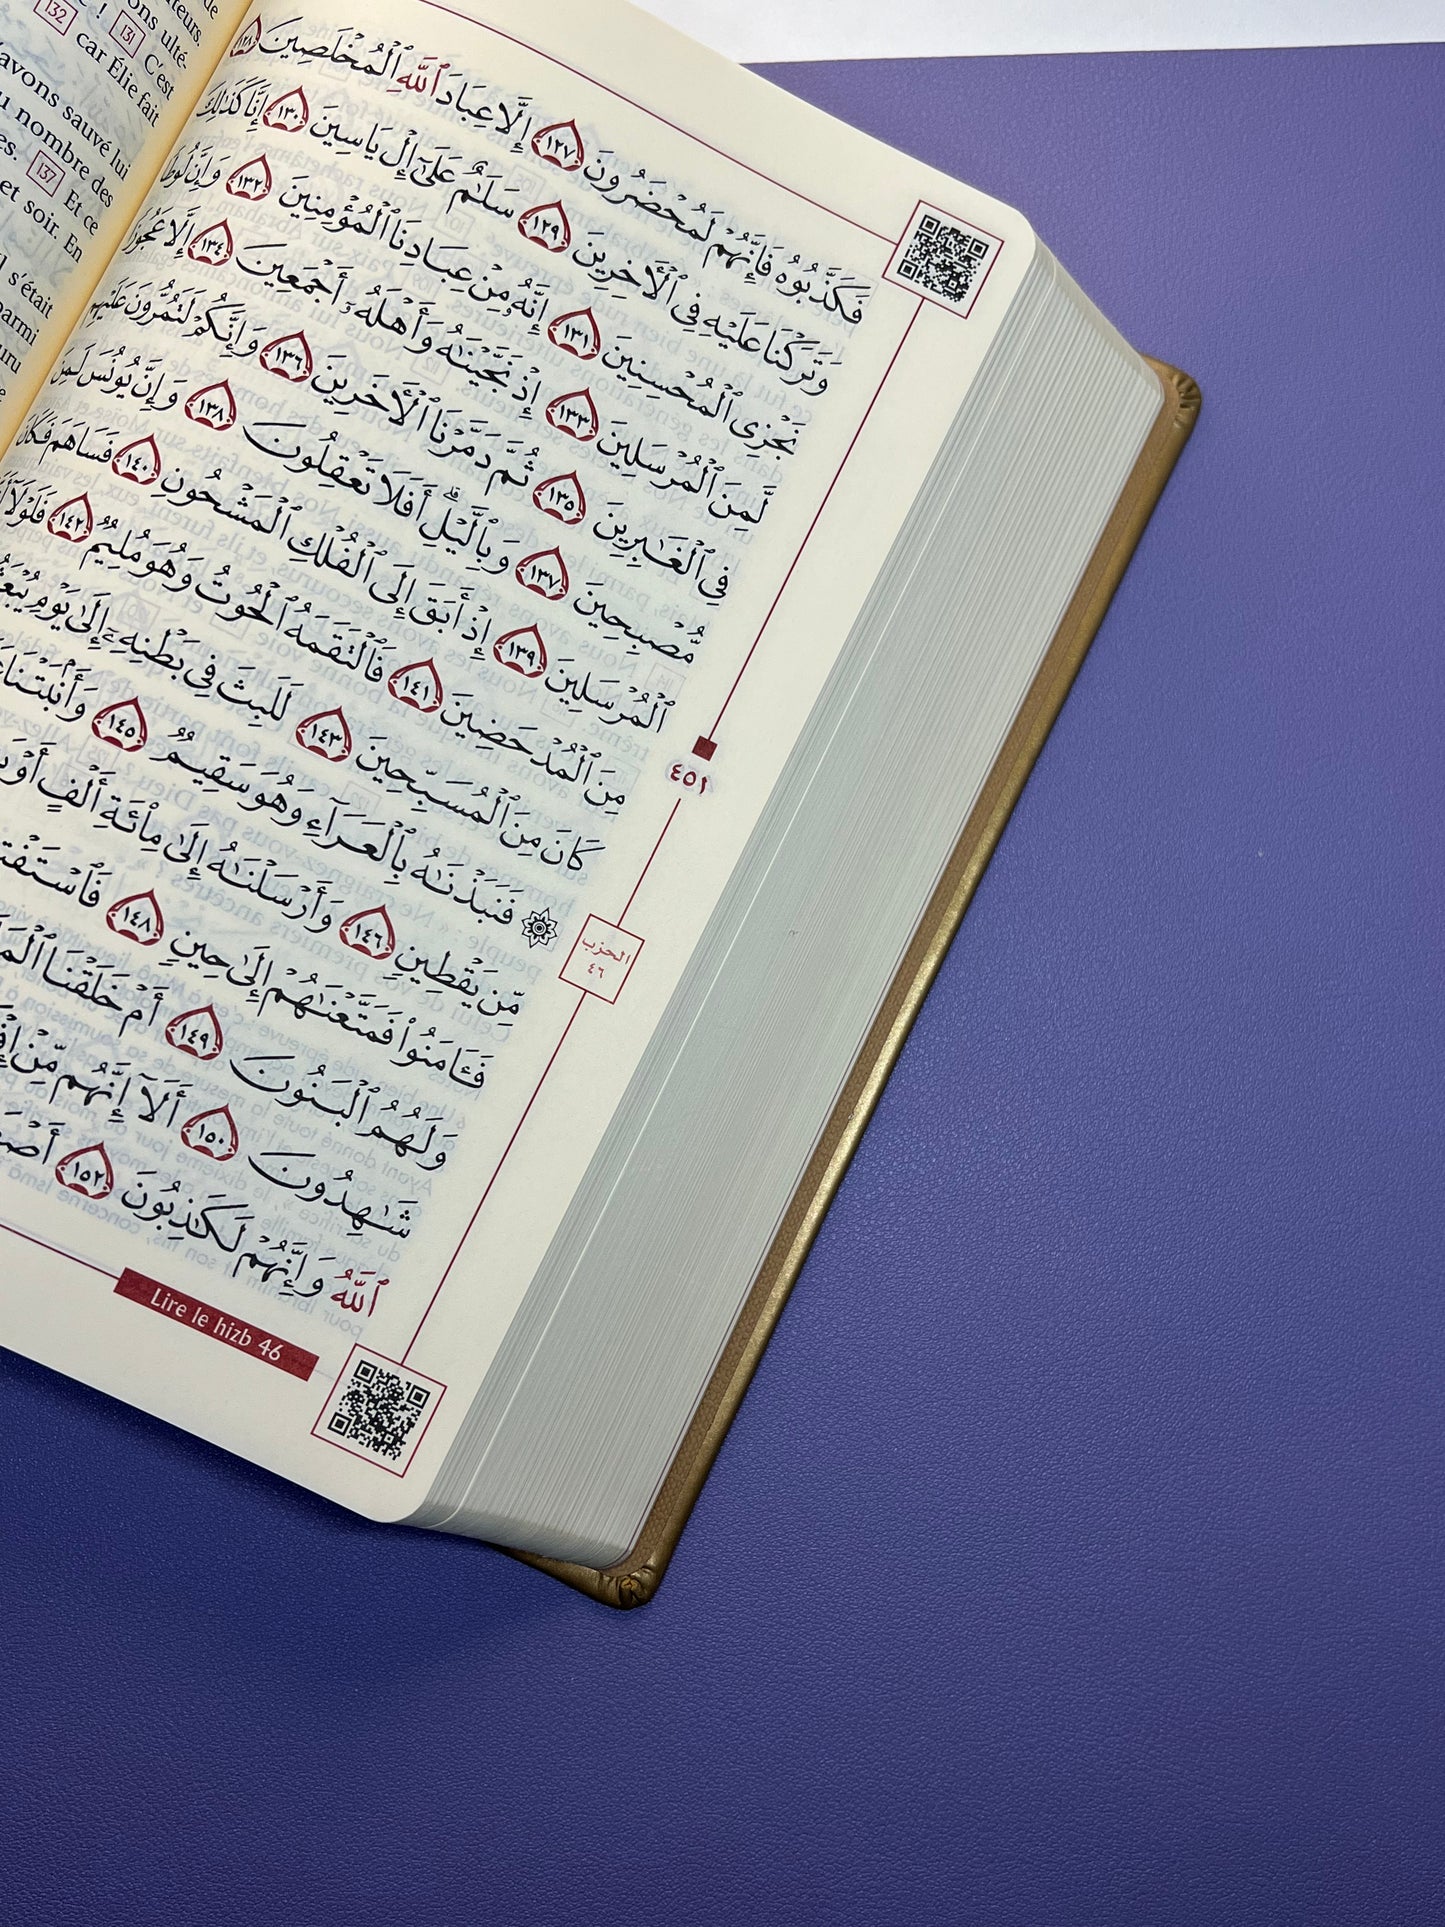 فَكَذَّبُوهُ فَإِنَّهُمْ لَمُحْضَرُونَ ١٢٧ إِلَّا عِبَادَ ٱللَّهِ ٱلْمُخْلَصِينَ ١٢٨
وَتَرَكْنَا عَلَيْهِ فِى ٱلْأَخِرِينَ ١٢٩ سَلَٰمٌ عَلَىٰٓ إِلْ يَاسِينَ ١٣٠ إِنَّا كَذَٰلِكَ
نَجْزِى ٱلْمُحْسِنِينَ ١٣١ إِنَّهُۥ مِنْ عِبَادِنَا ٱلْمُؤْمِنِينَ ١٣٢ وَإِنَّ لُوطًا
لَّمِنَ ٱلْمُرْسَلِينَ ١٣٣ إِذْ نَجَّيْنَٰهُ وَأَهْلَهُۥٓ أَجْمَعِينَ ١٣٤ إِلَّا عَجُوزًا
فِى ٱلْغَٰبِرِينَ ١٣٥ ثُمَّ دَمَّرْنَا ٱلْأَخَرِينَ ١٣٦ وَإِنَّكُمْ لَتَمُرُّونَ عَلَيْهِم
مُّصْبِحِينَ ١٣٧ وَبِٱلَّيْلِ ۗ أَفَلَا تَعْقِلُونَ ١٣٨ وَإِنَّ يُونُسَ لَمِنَ
ٱلْمُرْسَلِينَ ١٣٩ إِذْ أَبَقَ إِلَى ٱلْفُلْكِ ٱلْمَشْحُونِ ١٤٠ فَسَاهَمَ فَكَانَ
مِنَ ٱلْمُدْحَضِينَ ١٤١ فَٱلْتَقَمَهُ ٱلْحُوتُ وَهُوَ مُلِيمٌ ١٤٢ فَلَوْلَآ
كَانَ مِنَ ٱلْمُسَبِّحِينَ ١٤٣ لَلَبِثَ فِى بَطْنِهِۦٓ إِلَىٰ يَوْمِ
۞ فَنَبَذْنَٰهُ بِٱلْعَرَآءِ وَهُوَ سَقِيمٌ ١٤٥ وَأَنۢبَتْنَا
مِّن يَقْطِينٍ ١٤٦ وَأَرْسَلْنَٰهُ إِلَىٰ مِا۟ئَةِ أَلْفٍ أَوْ
فَـَٔامَنُوا۟ فَمَتَّعْنَٰهُمْ إِلَىٰ حِينٍ ١٤٨
وَلَهُمُ ٱلْبَنُونَ ١٤٩ أَمْ خَلَقْنَا
شَٰهِدُونَ ١٥٠ أَلَآ إِنَّهُم مِّنْ
ٱللَّهُ وَإِنَّهُمْ لَكَٰذِبُونَ ١٥٢
٤٥١
الحزب
٤٦
Lire le hizb 46
132
! 131 C'est
car Élie fait
avons sauvé lui
nombre des
137 Et ce
et soir. En
s'était